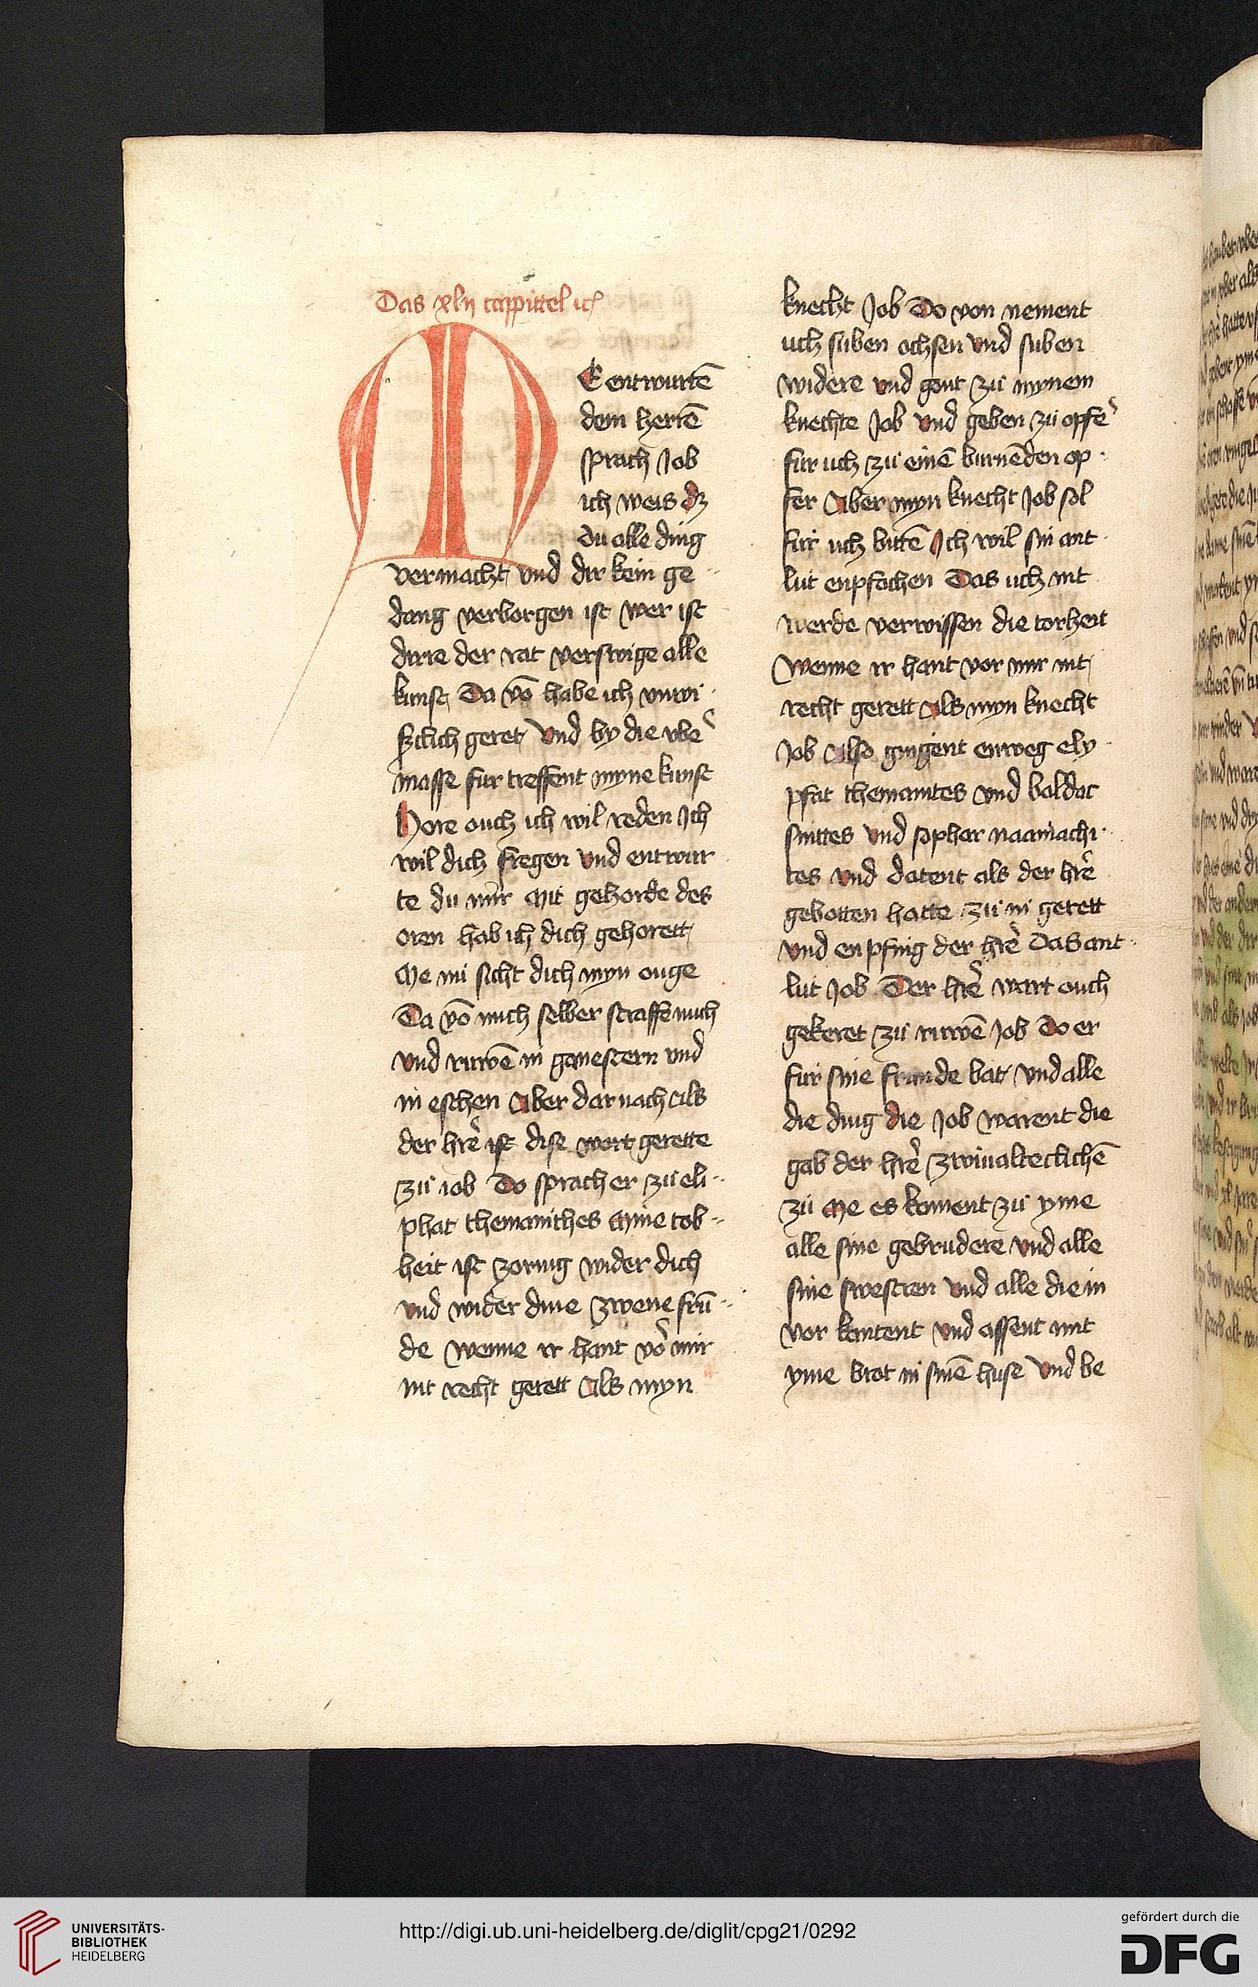 Das xlij cappittel ich
M
E entwurtē
dem herrē
sprach Job
ich weis dz
du alle ding
vermacht und dir kein ge
dang verborgen ist wer ist
dirre der rat verswige alle
kunst Da vō habe ich unwi
szclich geret Und by die vbe᷑
masse fur treffent myne kunst
Hore ouch ich wil reden Ich
wil dich fregen und entwur
te du mir Mit gehorde des
oren hab ich dich gehorett
Me nu sicht dich myn ouge
Da vō mich selber straffe mich
und ruwē in ganestern und
in eschen Aber dar nach als
der hrē ist dise wort gerette
zu iob Do sprach er zu eli
phat themanithes Mine tob
heit ist zornig wider dich
und wider dine zwene frū
de wenne ir hant vō mir
nit recht gerett Als myn
knecht Job Do von nement
uch suben ochsen und suben
widere und gont zu mynem
knechte Job und geben zu opfe᷑
fur uch zu einē burnēden op
fer Aber myn knecht Job sol
fur uch bittē Ich wil sin ant
lut enpfochen Das uch nit
werde verwissen die torheit
Wenne ir hant vor mir nit
recht gerett Als myn knecht
Job Also gingent enweg ely
pfat themanites und baldat
suittes und sophar naamachi
tes und datent als der hrē
gebotten hatte zu in gerett
und enpfing der hrē Das ant
lut Job Der hrē wart ouch
gekeret zu ruwē Job Do er
fur sine frunde bat und alle
die ding die Job warent die
gab der hrē zwiualteclichē
zu Me es koment zu yme
alle sine gebrudere und alle
sine swestren und alle die in
vor kantent und assent mit
yme brot in sinē huse Und be
UNIVERSITÄTS-
BIBLIOTHEK
HEIDELBERG
http://digi.ub.uni-heidelberg.de/diglit/cpg21/0292
gefördert durch die
DFG